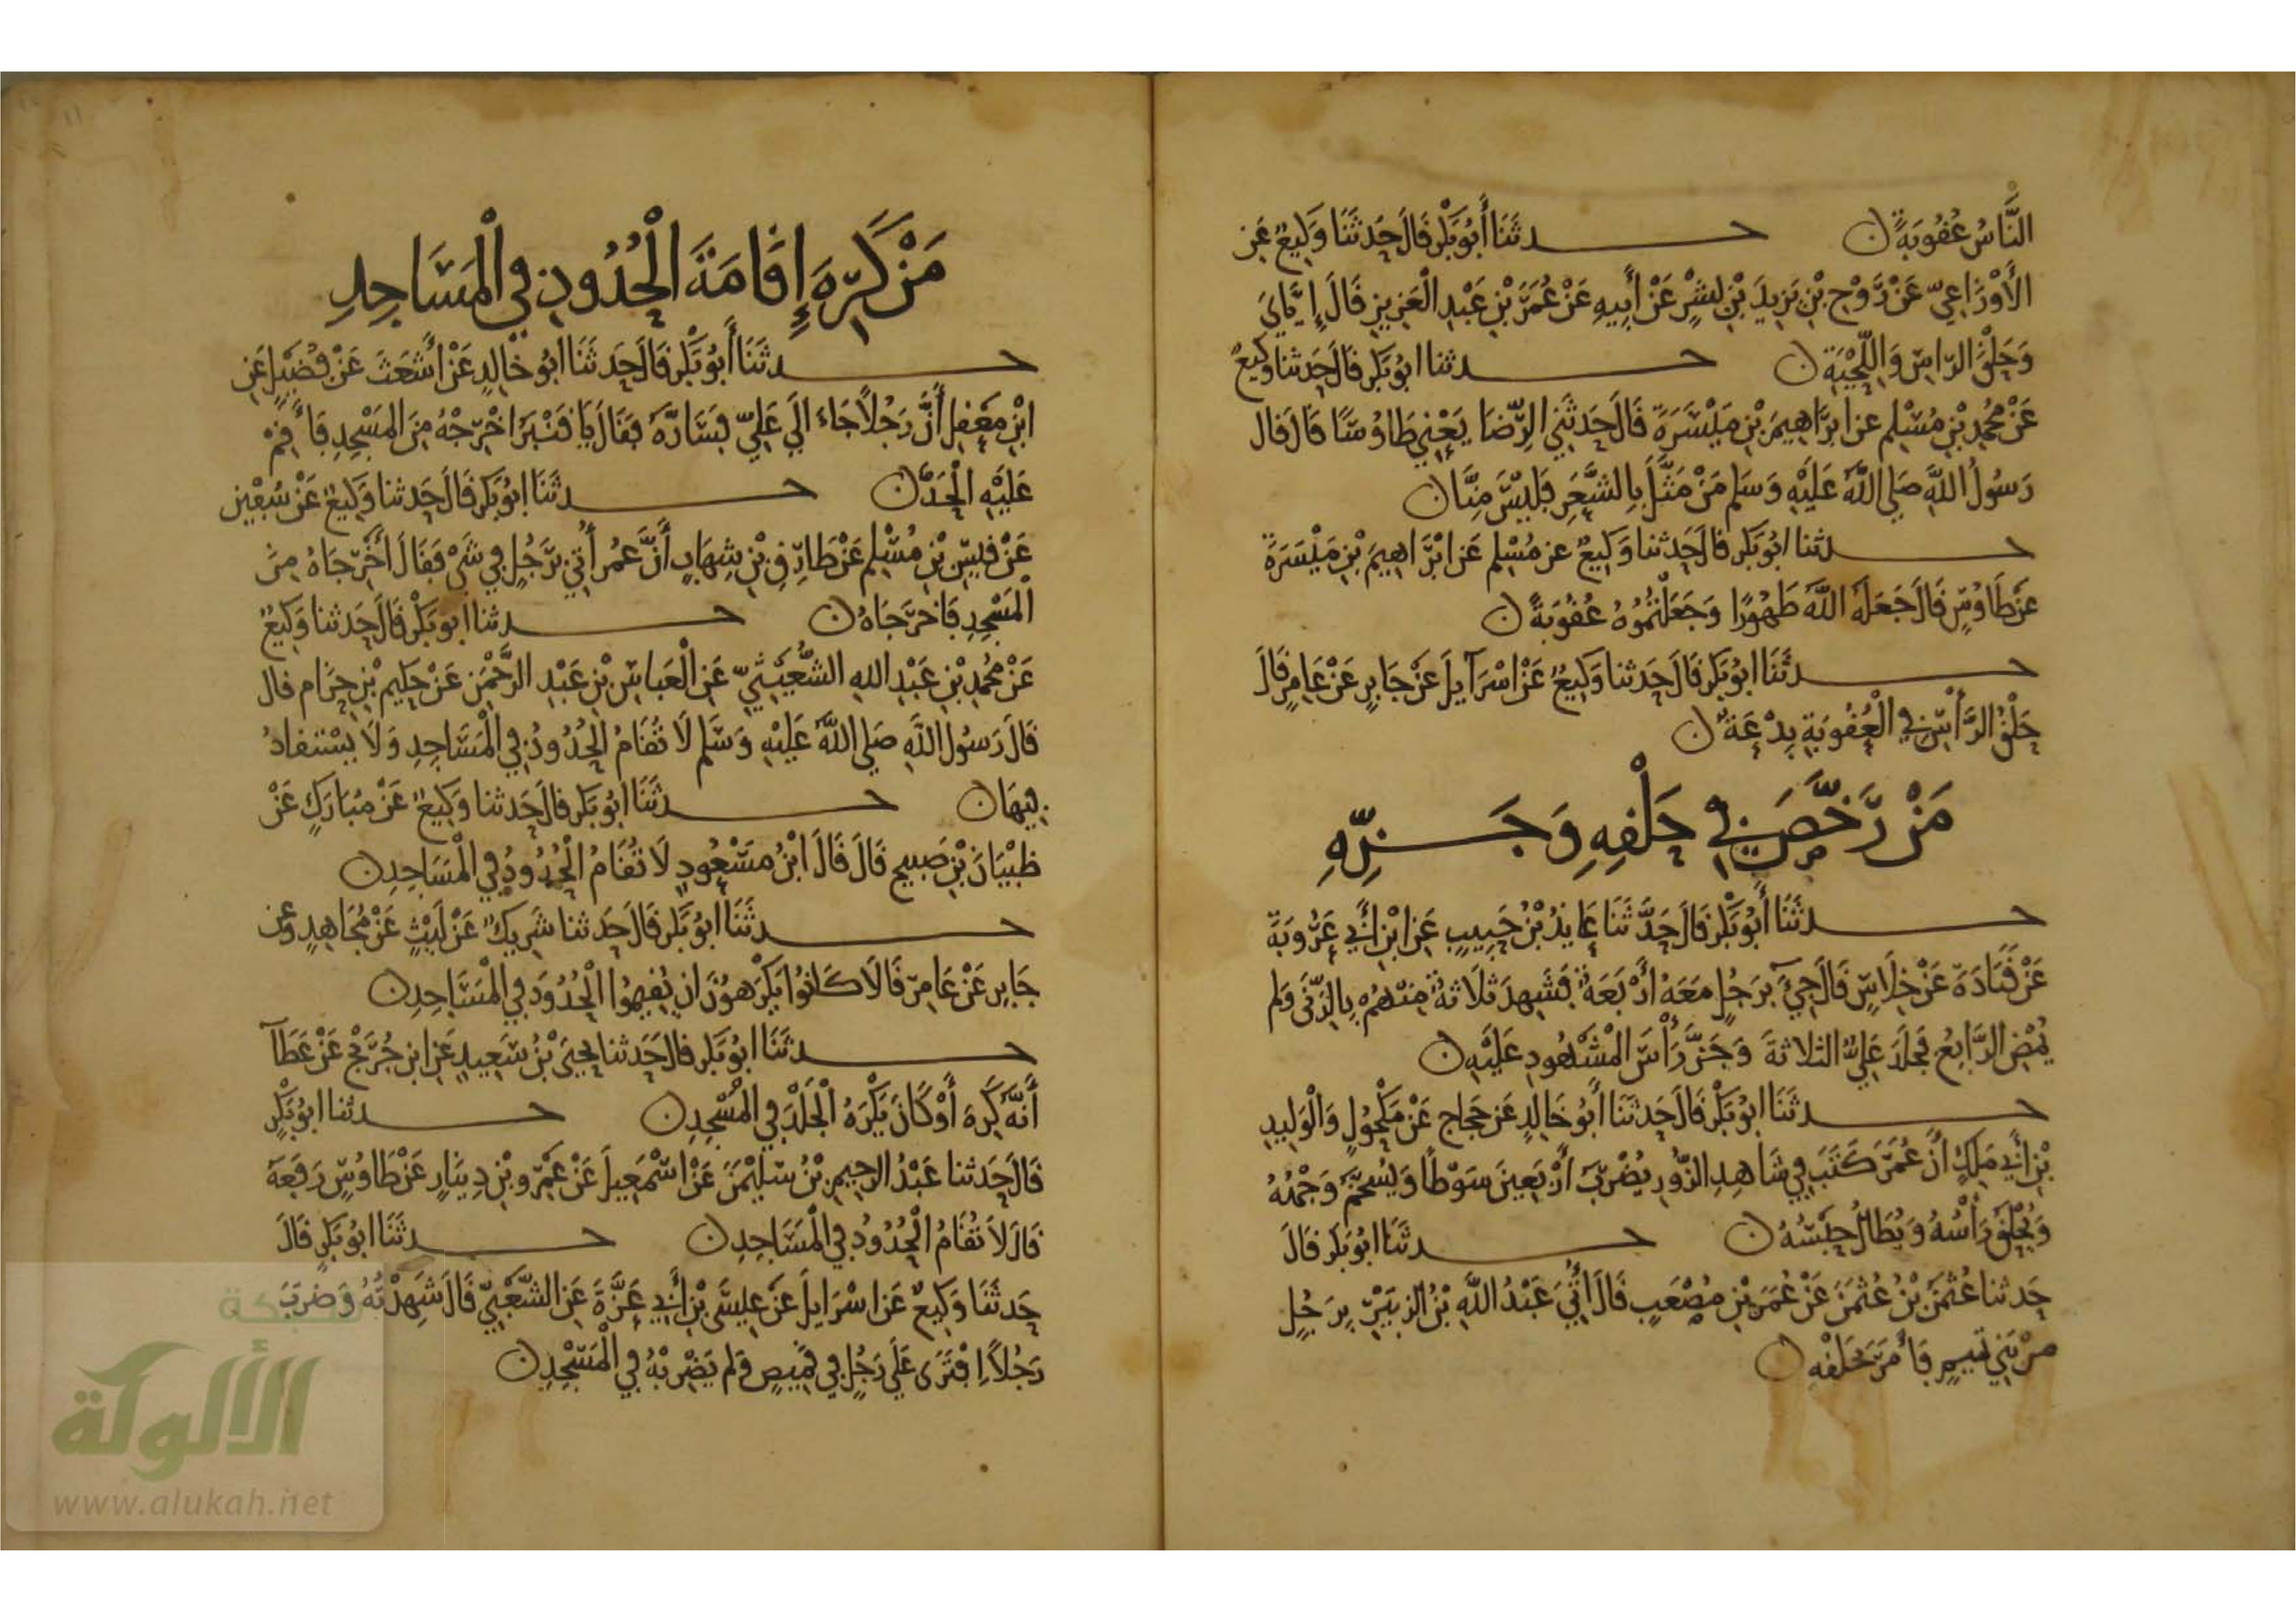 النَّاسُ عُقُوبَةً ن حـــدثنَا أَبُو بَكْرٍ قَالَ حَدثَنَا وَكِيعٌ عَنِ
الأَوْزَاعِيِّ عَنْ رَوْحِ بْنِ يَزِيدَ بْنِ بِشْرٍ عَنْ أَبِيهِ عَنْ عُمَرَ بْنِ عَبْدِ الْعَزِيزِ قَالَ إِيَّايَ
وَحَلْقَ الرَّاسِ وَاللِّحْيَةِ ن حـــدثنا ابُو بَكْرٍ قَالَ حَدثنا وَكِيعٌ
عَنْ مُحَمَّدِ بْنِ مُسْلِمٍ عن ابْرَاهِيمَ بْنِ مَيْسَرَةَ قَالَ حَدثَنِي الرِّضَا يَعْنِي طَاوُسًا قَالَ قَالَ
رَسُولُ اللَّهِ صَلى اللَّهُ عَلَيْهِ وَسَلم مَنْ مَثَّلَ بِالشَّعَرِ فَلَيْسَ مِنَّا ن
حـــدثنا ابُو بَكْرٍ قَالَ حَدثنا وَكِيعٌ عن مُسْلِمٍ عَن ابْرَاهِيمَ بْنِ مَيْسَرَةَ
عَنْ طَاوُسٍ قَالَ جَعَلَهُ اللَّهُ طَهُورًا وَجَعَلْتُمُوهُ عُقُوبَةً ن
حـــدثنَا ابُو بَكْرٍ قَالَ حَدثنا وَكِيعٌ عَنْ اسْرَآيِلَ عَنْ جَابِرٍ عَنْ عَامِرٍ قَالَ
حَلْقُ الرَّأْسِ فِي الْعُقُوبَةِ بِدْعَةٌ ن
مَنْ رَخَّصَ فِي حَلْقِهِ وَجَـــزِّهِ
حـــدثنَا أَبُو بَكْرٍ قَالَ حَدَّثَنَا عَايِذُ بْنُ حَبِيبٍ عَنِ ابْنِ أَبِي عَرُوبَةَ
عَنْ قَتَادَةَ عَنْ خِلَاسٍ قَالَ جِيءَ بِرَجُلٍ مَعَهُ أَرْبَعَةٌ فَشَهِدَ ثَلَاثَةٌ مِنْهُمْ بِالزِّنَى وَلم
يُمْضِ الرَّابِعُ فَجَلَدَ عَلِيٌّ الثلَاثةَ وَجَزَّ رَأْسَ الْمَشْهُودِ عَلَيْهِ ن
حـــدثنَا ابُو بَكْرٍ قَالَ حَدثَنَا أَبُو خَالِدٍ عَن حَجاجٍ عَنْ مَكْحُولٍ وَالْوَلِيدِ
بْنِ أَبِي مَلِكٍ أَنَّ عُمَرَ كَتَبَ فِي شَاهِدِ الزُّورِ يُضْرَبُ أَرْبَعِينَ سَوْطًا وَيُسَخَّمُ وَجْهُهُ
وَيُحْلَقُ رَأْسُهُ وَيُطَالُ حَبْسُهُ ن حـــدثنَا ابُو بَكْرٍ قَالَ
حَدثنا عُثْمَنُ بْنُ عُثْمَنَ عَنْ عُمَرَ بْنِ مُصْعَبٍ قَالَ أُتِيَ عَبْدُ اللَّهِ بْنُ الزُبَيْرِ بِرَجُلٍ
مِنْ بَنِي تَمِيمٍ فَأَمَرَ بِحَلْقِهِ ن
مَنْ كَرِهَ إِقَامَةَ الْحُدُودِ فِي الْمَسَاجِدِ
حـــدثنَا أَبُو بَكْرٍ قَالَ حَدثَنَا ابُو خَالِدٍ عَنْ أَشْعَثَ عَنْ فُضَيْلٍ عَنِ
ابْنِ مَعْقِلٍ أَنَّ رَجُلًا جَاءَ الَى عَلِيٍّ فَسَارَّهُ فَقَالَ يَا قَنْبَرُ اخْرِجْهُ مِنَ الْمَسْجِدِ فَأَقِمْ
عَلَيْهِ الْحَدَّ ن حـــدثنَا ابُو بَكْرٍ قَالَ حَدثنا وَكِيعٌ عَنْ سُفْيَن
عَنْ قَيْسِ بْنِ مُسْلِمٍ عَنْ طَارِقِ بْنِ شِهَابٍ أَنَّ عُمَرَ أُتِيَ بِرَجُلٍ فِي شَيْءٍ فَقَالَ أَخْرِجَاهُ مِنَ
الْمَسْجِدِ فَاخْرَجَاهُ ن حـــدثنا ابو بَكْرٍ قَالَ حَدثنا وَكِيعٌ
عَنْ مُحَمَّدِ بْنِ عَبْدِ اللهِ الشُّعَيْثِيِّ عَنِ الْعَبَاسِ بْنِ عَبْدِ الرَّحْمَنِ عَنْ حَكِيمِ بْنِ حِزَامٍ قال
قَالَ رَسُولُ اللَّهِ صَلى اللَّهُ عَلَيْهِ وَسَلم لَا تُقَامُ الْحُدُودُ فِي الْمَسَاجِدِ وَلَا يُسْتَقَادُ
فِيهَا ن حـــدثنَا ابُو بَكْرٍ قالَ حَدثنا وَكِيعٌ عَنْ مُبَارَكٍ عَنْ
ظَبْيَانَ بْنِ صَبِيحٍ قَالَ قَالَ ابْنُ مَسْعُودٍ لَا تُقَامُ الْحُدُودُ فِي الْمَسَاجِدِ ن
حـــدثنَا ابُو بَكْرٍ قَالَ حَدثنا شَرِيكٌ عَنْ لَيْثٍ عَنْ مُجَاهِدٍ وعن
جَابِرٍ عَنْ عَامِرٍ قَالَا كَانُوا يَكْرَهُونَ ان يُقِيمُوا الْحُدُودَ فِي الْمَسَاجِدِ ن
حـــدثنَا ابُو بَكْرٍ قالَ حَدثنا يحيَى بْنُ سَعِيدٍ عَنِ ابنِ جُرَيْجٍ عَنْ عَطَآ
أَنَّهُ كَرِهَ أَوْ كَانَ يَكْرَهُ الْجَلْدَ فِي الْمَسْجِدِ ن حـــدثنا ابُو بَكْرٍ
قَالَ حَدثنا عَبْدُ الرحِيمِ بْنُ سُلَيْمَنَ عَنْ اسْمَعِيلَ عَنْ عَمْرِو بْنِ دِينَارٍ عَنْ طَاوُسٍ رَفَعَهُ
قَالَ لَا تُقَامُ الْحُدُودُ فِي الْمَسَاجِدِ ن حـــدثنَا ابُو بَكْرٍ قَالَ
حَدثَنَا وَكِيعٌ عَن اسْرَايِلَ عَنْ عِيسَى بْنِ أَبِي عَزَّةَ عَنِ الشَّعْبِيِّ قَالَ شَهِدْتُهُ وَضَرَبَ
رَجُلًا افْتَرَى عَلَى رَجُلٍ فِي قَمِيصٍ وَلم يَضْرِبْهُ فِي الْمَسْجِدِ ن
شبكة
الألوكة
www.alukah.net